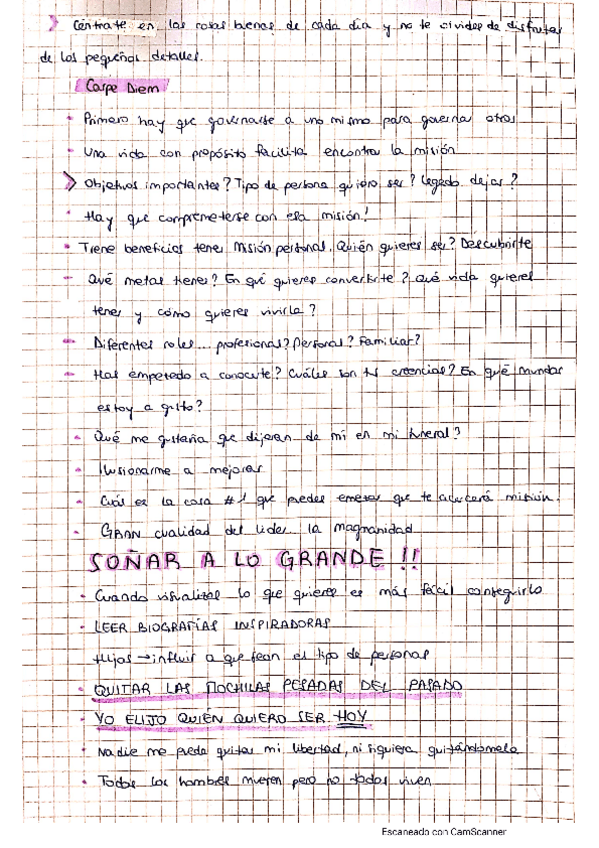 > Céntrate en las cosas buenas de cada día y no te olvides de disfrutar
de los pequeños detalles.
Carpe Diem
- Primero hay que governarse a uno mismo para governar otros
- Una vida con propósito facilita encontrar la misión
> Objetivos importantes? Tipo de persona quiero ser? Legado dejar?
- Hay que comprometerse con esa misión!
- Tiene beneficios tener misión personal. Quién quieres ser? Descubrirte
- Qué metas tienes? En qué quieres convertirte? Qué vida quieres
tener y cómo quieres vivirla?
- Diferentes roles... profesional? Personal? Familiar?
- Has empezado a conocerte? Cuáles son tus creencias? En qué mundos
estoy a gusto?
- Qué me gustaría que dijeran de mí en mi funeral?
- Ilusionarme a mejorar
- Cuál es la cosa #1 que puedes que te acercará misión.
- GRAN cualidad del líder... la magnanidad
SOÑAR A LO GRANDE!!
- Cuando visualizas lo que quieres es más fácil conseguirlo
- LEER BIOGRAFÍAS INSPIRADORAS
Hijos → influir a que sean el tipo de personas
- QUITAR LAS MOCHILAS PESADAS DEL PASADO
- YO ELIJO QUIÉN QUIERO SER HOY
- Nadie me puede quitar mi libertad, ni siquiera quitándomela
- Todos los hombres mueren pero no todos viven
Escaneado con CamScanner